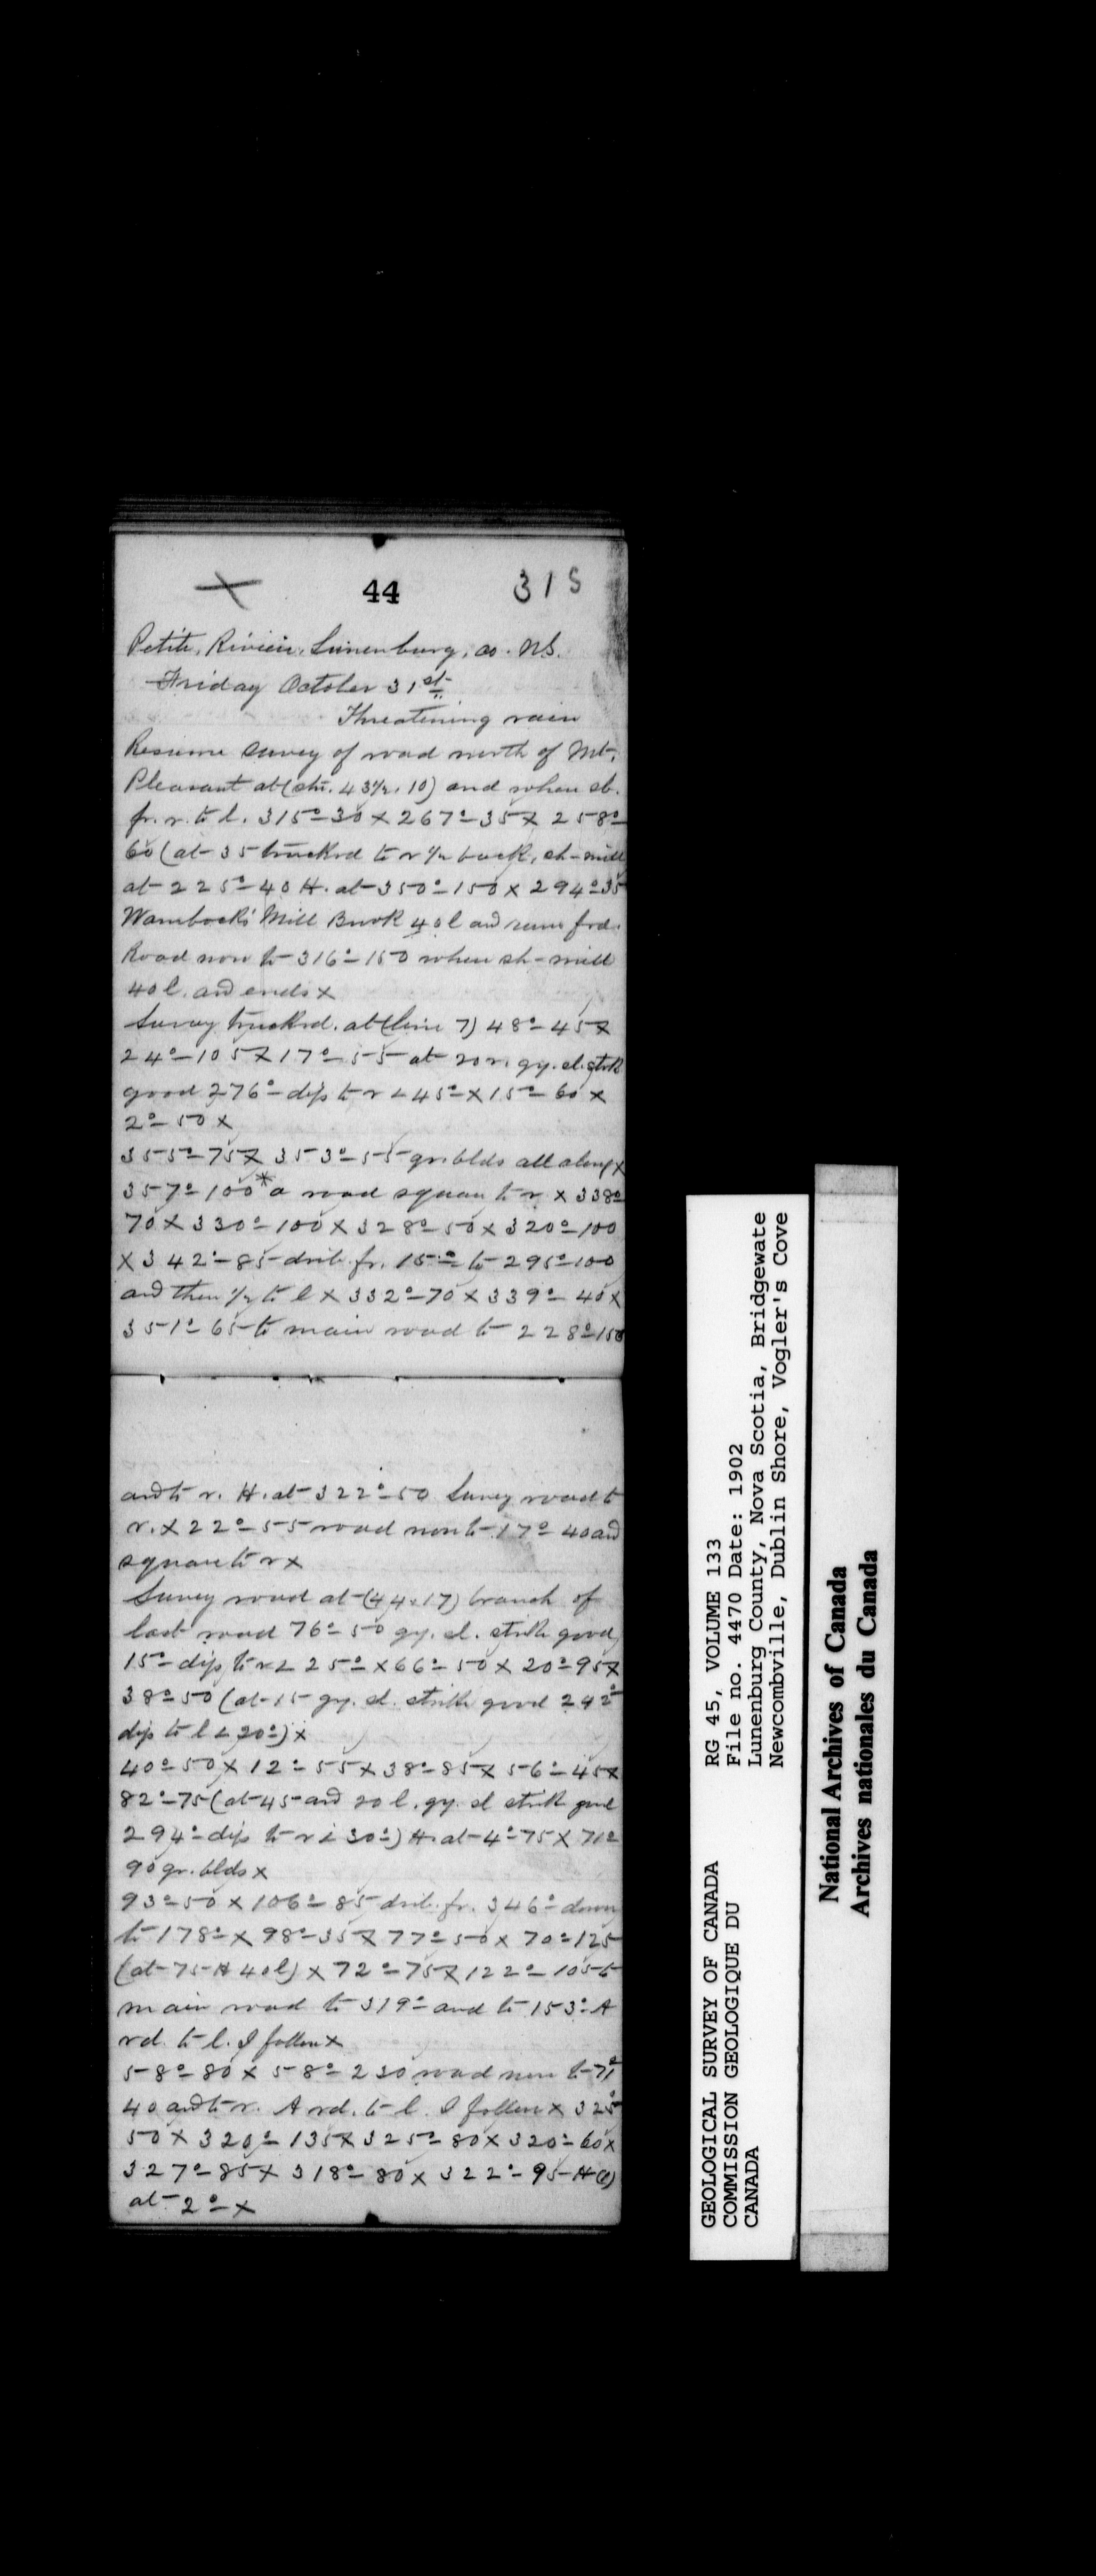 44 315
Petite, Riviere, Lunenburg, co. NS.
Friday October 31st
Threatening rain
Resume survey of road north of Mt.
Pleasant at (str. 43½, 10) and when sb.
fr. r. to l. 315°-30 x 267°-35 x 258°
60 (at 35 truckrd to r ½ back, sh-mill
at 225°-40 H. at 350°-150 x 294°35
Mill Brook 40 l and runs frd.
Road now to 316°-150 when sh-mill
40 l. and ends x
Survey truckrd. at (line 7) 48°-45 x
24°-105 x 17°-55 at 20 r. gy. sl. strk
good 276°-dip to r ∠ 45° x 15°-60 x
2°-50 x
355°-75 x 353°-55 gr. blds all along x
357°-100* a road square to r x 338°
70 x 330°-100 x 328°-50 x 320°-100
x 342°-85 drit. fr. 15° to 295°-100
and then ½ to l x 332°-70 x 339°-40 x
351°-65 to main road to 228°-150
and to r. H. at 322°-50 Survey road to
r. x 22°-55 road now to 17°-40 and
square to r x
Survey road at (44.17) branch of
last road 76°-50 gy. sl. strike good
15°-dip to r ∠ 25° x 66°-50 x 20°-95 x
38°-50 (at 15 gy. sl. strike good 242°
dip to l ∠ 20°) x
40°-50 x 12°-55 x 38°-85 x 56°-45 x
82°-75 (at 45 and 20 l. gy. sl strik good
294°-dip to r ∠ 30°) H. at 4°-75 x 71°
90 gr. blds x
93°-50 x 106°-85 drit. fr. 346° down
to 178° x 98°-35 x 77°-50 x 70°-125
(at 75 H 40 l) x 72°-75 x 122°-105 to
main road to 319° and to 153° A
rd. to l. I follow x
58°-80 x 58°-230 road now to 71°
40 and to r. A rd. to l. I follow x 325°
50 x 320°-135 x 325°-80 x 320°-60 x
327°-85 x 318°-80 x 322°-95 H (l)
at 2° x
GEOLOGICAL SURVEY OF CANADA RG 45, VOLUME 133
COMMISSION GEOLOGIQUE DU File no. 4470 Date: 1902
CANADA Lunenburg County, Nova Scotia, Bridgewate
Newcombville, Dublin Shore, Vogler's Cove
National Archives of Canada
Archives nationales du Canada